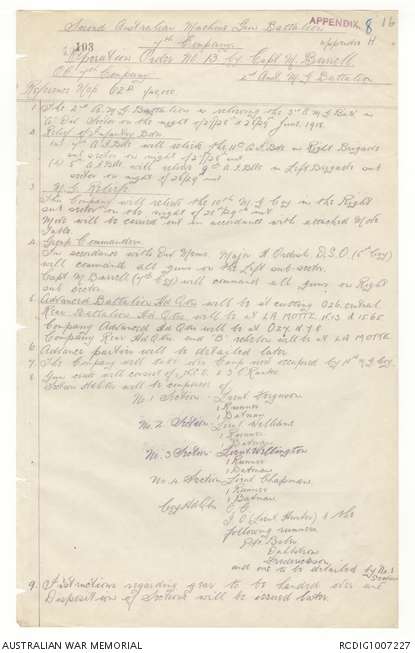 APPENDIX 8 16
Second Australian Machine Gun Battalion
7th Company. Appendix H
103
Operation Order No. 13 by Capt M. Barrell
O.C. 7th Company 2nd Aust M G Battalion
Reference Map 62D
1. The 2nd A.M.G Battalion is relieving the 3rd A M G Batt in
Sector on the night of June 1918.
2. Relief of Infantry Bdes
(a) 7th A I Bde will relieve the 11th A I Bde in Right Brigade
sub sector on night of 27/28 inst
(b) 5 A I Bde will relieve 9th A I Bde in Left Brigade sub
sector on night of 28/29 inst
3. M. G. Reliefs
This Company will relieve the 10th M G Coy in the Right
sub sector on the night of inst
Move will be carried out in accordance with attached Move
Table.
4. Group Commanders
In accordance with Div Memo. Major A Ordish D.S.O. (6th Coy)
will command all guns on the Left sub-sector.
Capt M Barrell (7th Coy) will command all guns on Right
sub sector.
5. Advanced Battalion Hd Qrs will be at cutting O26 central
Rear Battalion Hd Qrs will be at LA MOTTE
Company Advanced Hd Qrs will be at
Company Rear Hd Qrs and "B" echelon will be at LA MOTTE
6. Advance parties will be detailed later
7. This Company will take over Camp now occupied by M G Coy.
8. Gun crews will consist of
Section Hd Qrs will be composed of
No. 1 Section. Lieut Ferguson
1 Runner
1 Batman
No. 2. Section Lieut Williams
1 Runner
1 Batman
No. 3 Section Lieut Wellington
1 Runner
1 Batman
No. 4 Section Lieut Chapman
1 Runner
1 Batman
Coy Hd Qrs O.C.
I.O. (Lieut Hunter) & the
following runners
Dahlstrom
Frederickson
and one to be detailed by No. 1
Section
9. Instructions regarding gear to be handed over and
Disposition of Sections will be issued later.
AUSTRALIAN WAR MEMORIAL RCDIG1007227